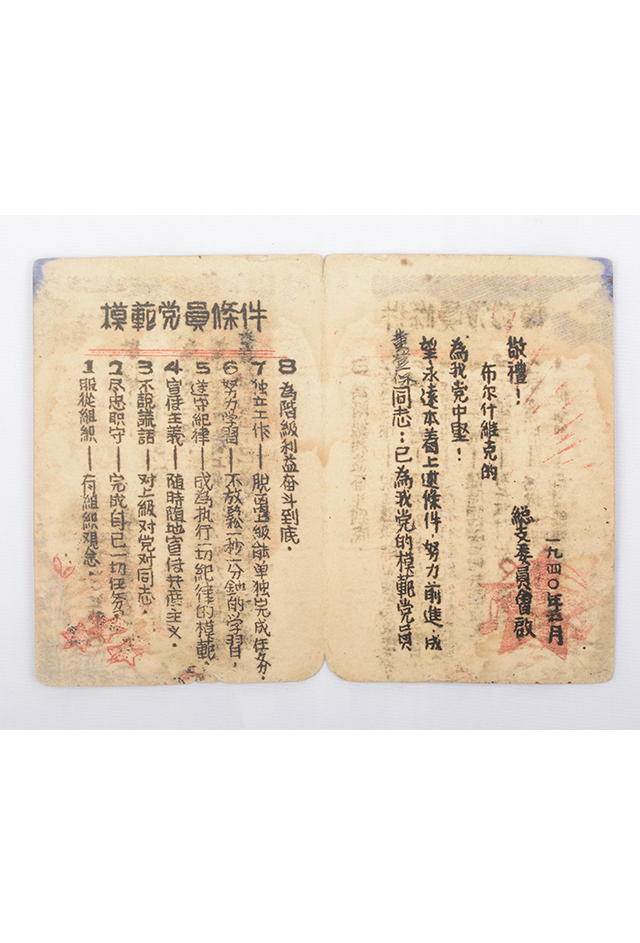 模範党員條件
1 服從組織——有組織观念.
2 尽忠职守——完成自己一切任务.
3 不說謊話——对上級对党对同志.
4 宣传主義——隨時隨地宣传共產主义.
5 遵守紀律——成為执行一切紀律的模範.
6 努力學習——不放鬆一秒一分鈡的学習.
7 独立工作——脫离上級能单独完成任务.
8 為階級利益奋斗到底.
同志:已為我党的模範党員
望永遠本着上述條件,努力前進,成
為我党中堅!
布尔什維克的
敬禮!
總支委員會啟
一九四〇年 月